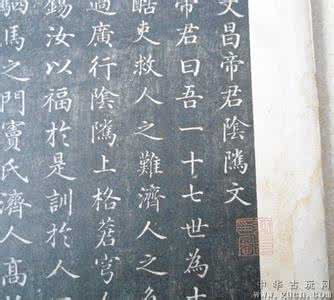 文昌帝君陰隲文
帝君曰吾一十七世為士
酷吏救人之難濟人之急
過廣行陰隲上格蒼穹人
錫汝以福於是訓於人
駟馬之門竇氏濟人高
中华古玩网
www.gucn.com